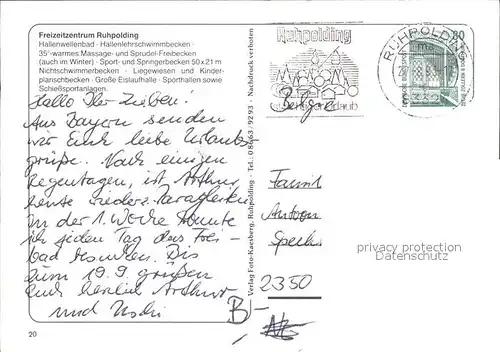 Freizeitzentrum Ruhpolding
Hallenwellenbad · Hallenlehrschwimmbecken ·
35°-warmes Massage- und Sprudel-Freibecken
(auch im Winter) · Sport- und Springerbecken 50 x 21 m
Nichtschwimmerbecken · Liegewiesen und Kinder-
planschbecken · Große Eislaufhalle · Sporthallen sowie
Schießsportanlagen.
Hallo Ihr Lieben!
Aus Bayern senden
wir Euch liebe Urlaubs
grüße. Nach einigen
Regentagen, ist Arthur
heute wieder
In der 1. Woche konnte
ich jeden Tag das Frei-
bad
zum 19.9. grüßen
Euch herzlich Arthur
und Uschi
20
Verlag Foto-Kaesberg, Ruhpolding · Tel.: 0 86 63 / 92 93 · Nachdruck verboten
Ruhpolding
RUHPOLDING
80
Belgien
Famil
Anton
2350
B/-
privacy protection
Datenschutz